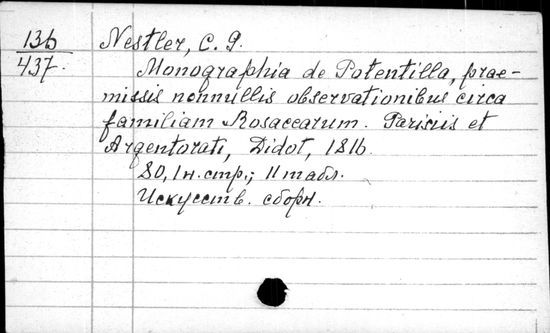 136
437.
Nestler, C. G.
Monographia de Potentilla, prae-
missis nonnullis observationibus circa
familiam Rosacearum. Parisiis et
Argentorati, Didot, 1816.
80, 1 н. стр.; 11 табл.
Искусств. сборн.